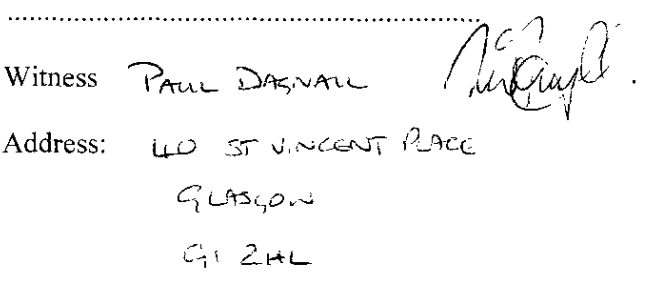 Witness PAUL DAGNALL
Address: 40 ST VINCENT PLACE
GLASGOW
G1 2HL